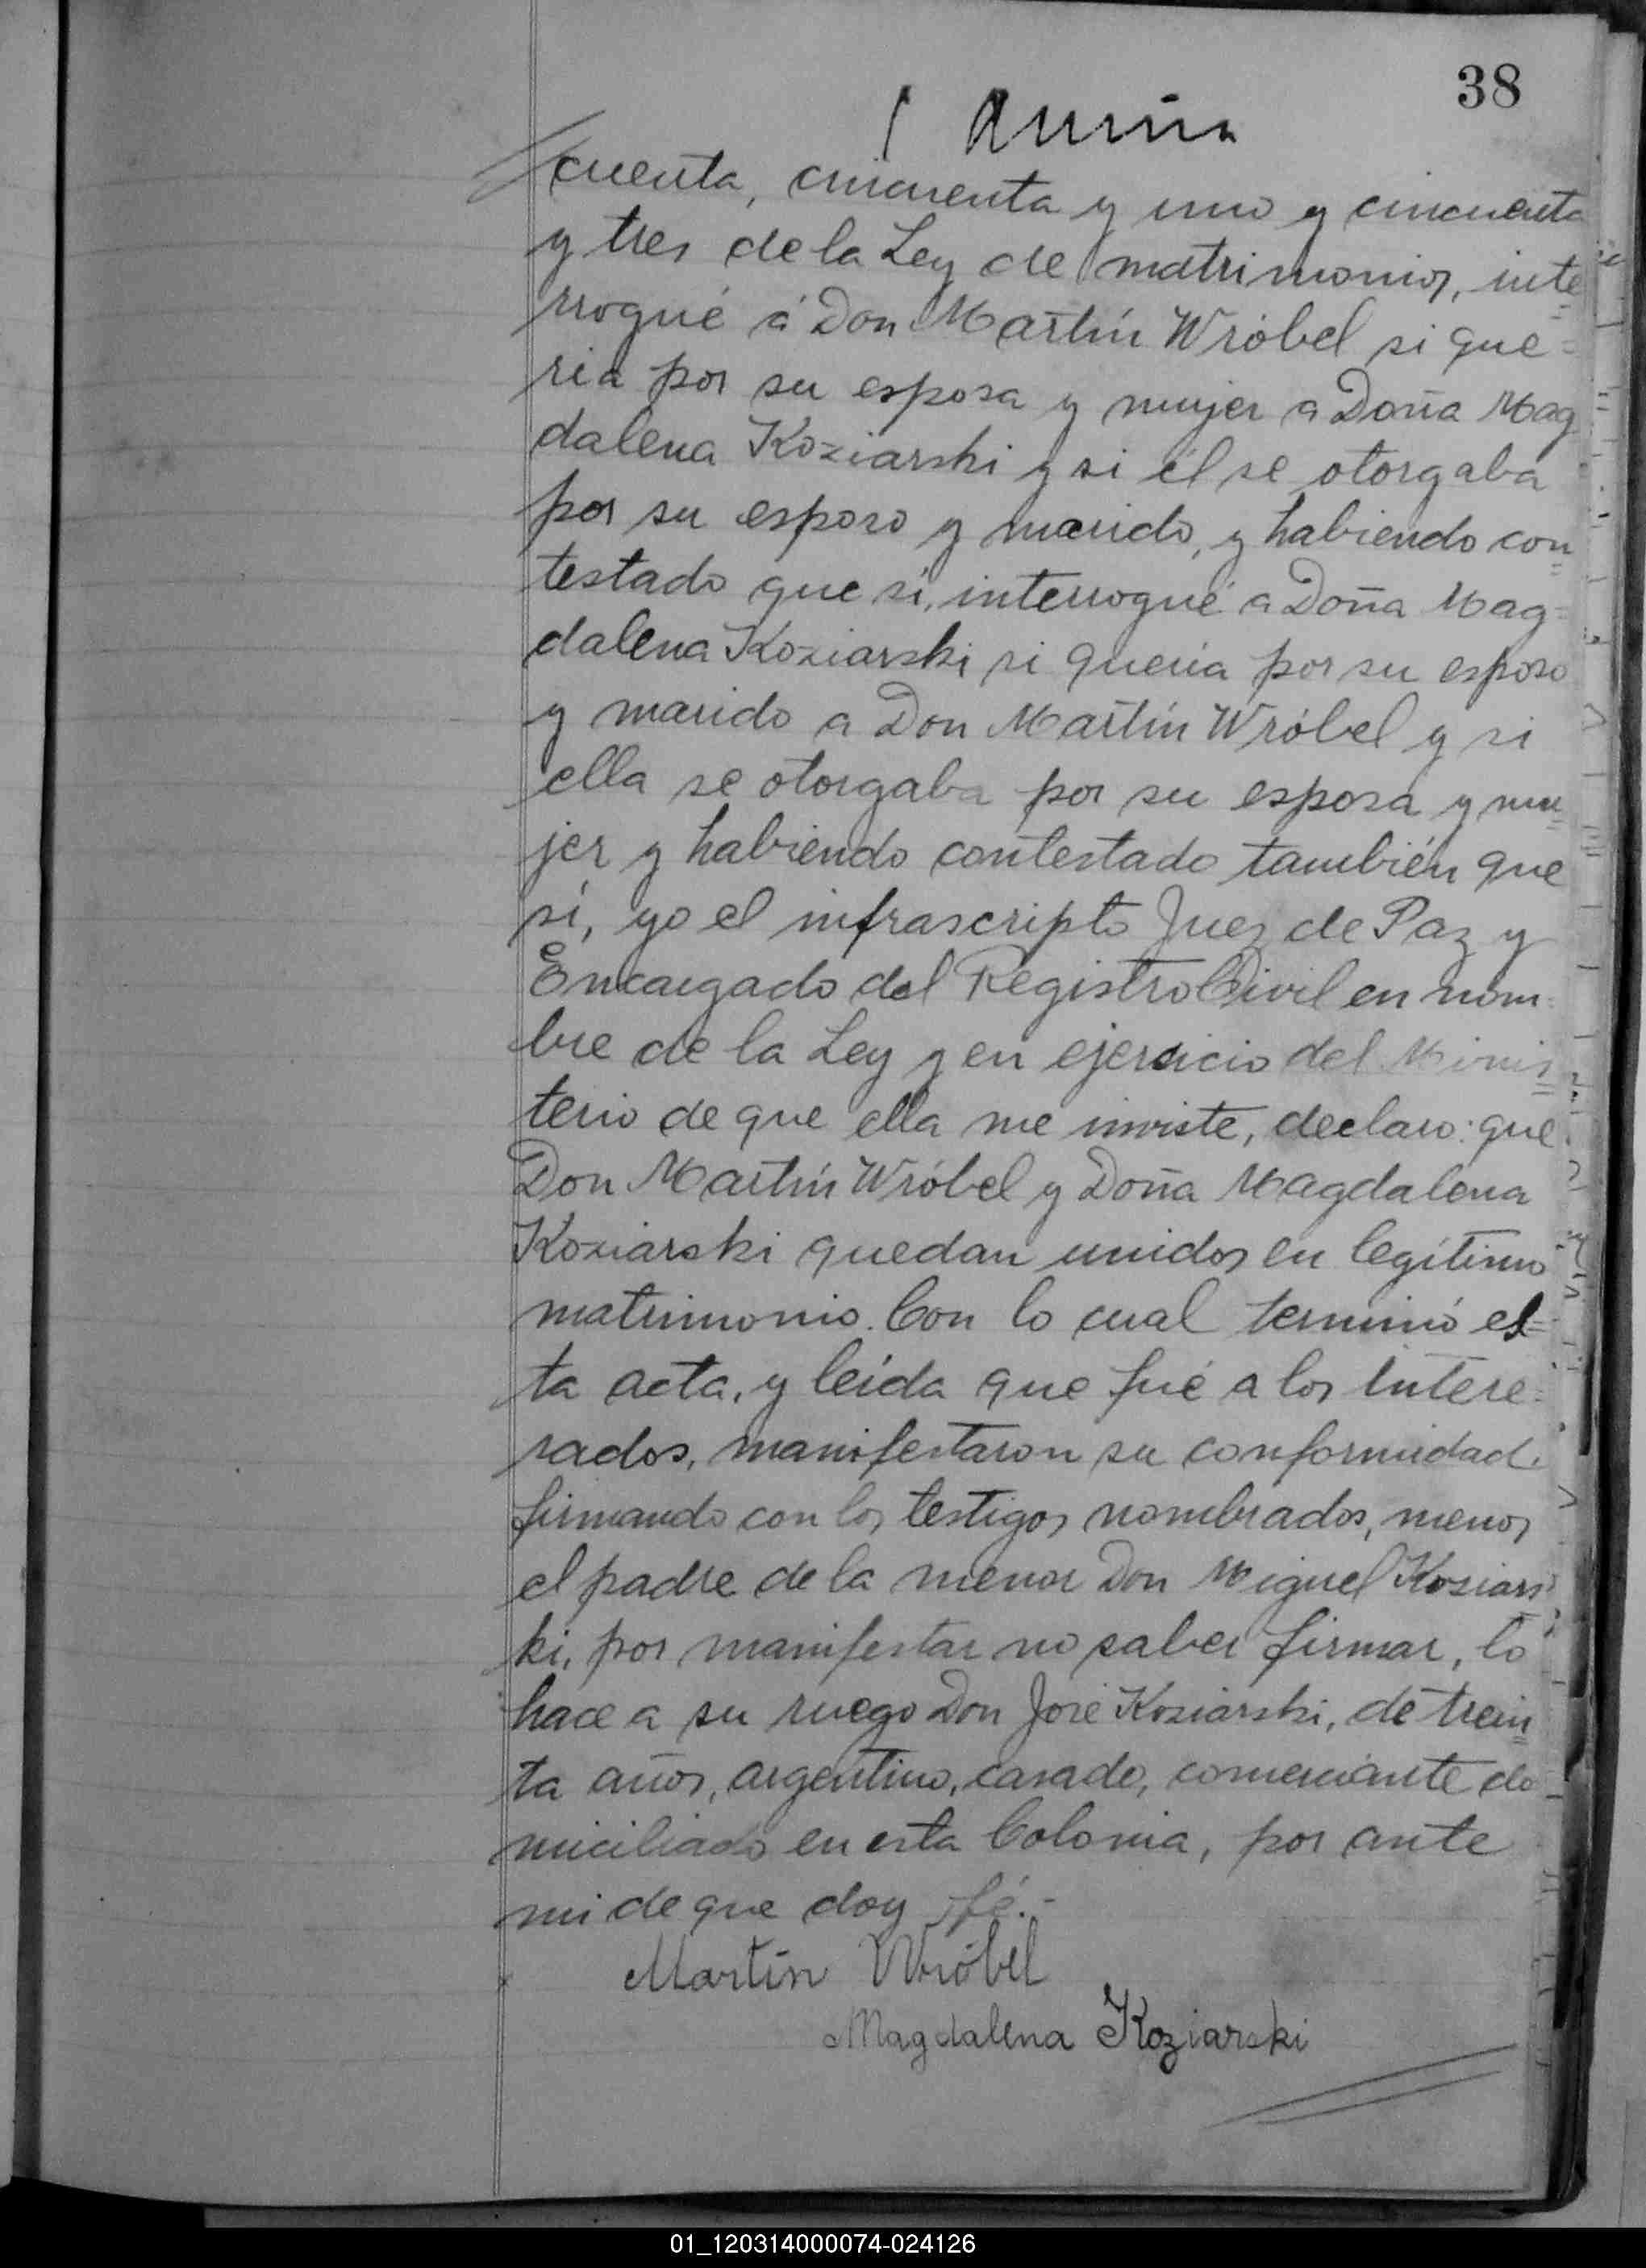 38
cuenta, cincuenta y uno y cincuenta
y tres de la Ley de matrimonios, inte=
rrogué á Don Martín Wróbel si que=
ria por su esposa y mujer a Doña Mag
dalena Koziarski y si él se otorgaba
por su esposo y marido, y habiendo con=
testado que sí, interrogué a Doña Mag=
dalena Koziarski si quería por su esposo
y marido a Don Martín Wróbel y si
ella se otorgaba por su esposa y mu=
jer y habiendo contestado también que
sí, yo el infrascripto Juez de Paz y
Encargado del Registro Civil en nom=
bre de la Ley y en ejercicio del Minis=
terio de que ella me inviste, declaro: que
Don Martín Wróbel y Doña Magdalena
Koziarski quedan unidos en legítimo
matrimonio. Con lo cual terminó es=
ta acta, y leída que fué a los intere=
sados, manifestaron su conformidad
firmando con los testigos nombrados, menos
el padre de la menor Don Miguel Koziars
ki, por manifestar no saber firmar, lo
hace a su ruego Don José Koziarski, de trein=
ta años, argentino, casado, comerciante do
miciliado en esta Colonia, por ante
mi de que doy fé.-
Martín Wróbel
Magdalena Koziarski
01_120314000074-024126